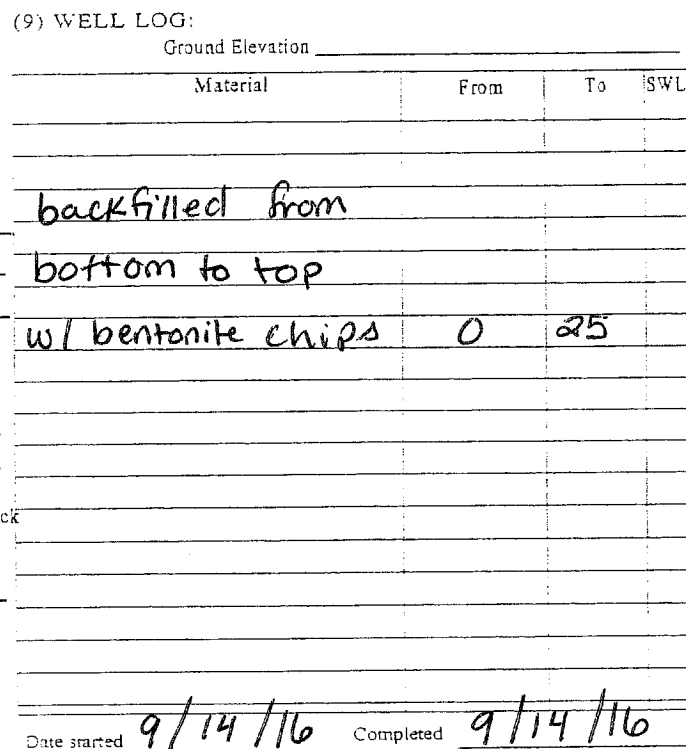 (9) WELL LOG:
Ground Elevation
Material From To SWL
backfilled from
bottom to top
w/ bentonite chips 0 25
ck
Date started 9/14/16 Completed 9/14/16